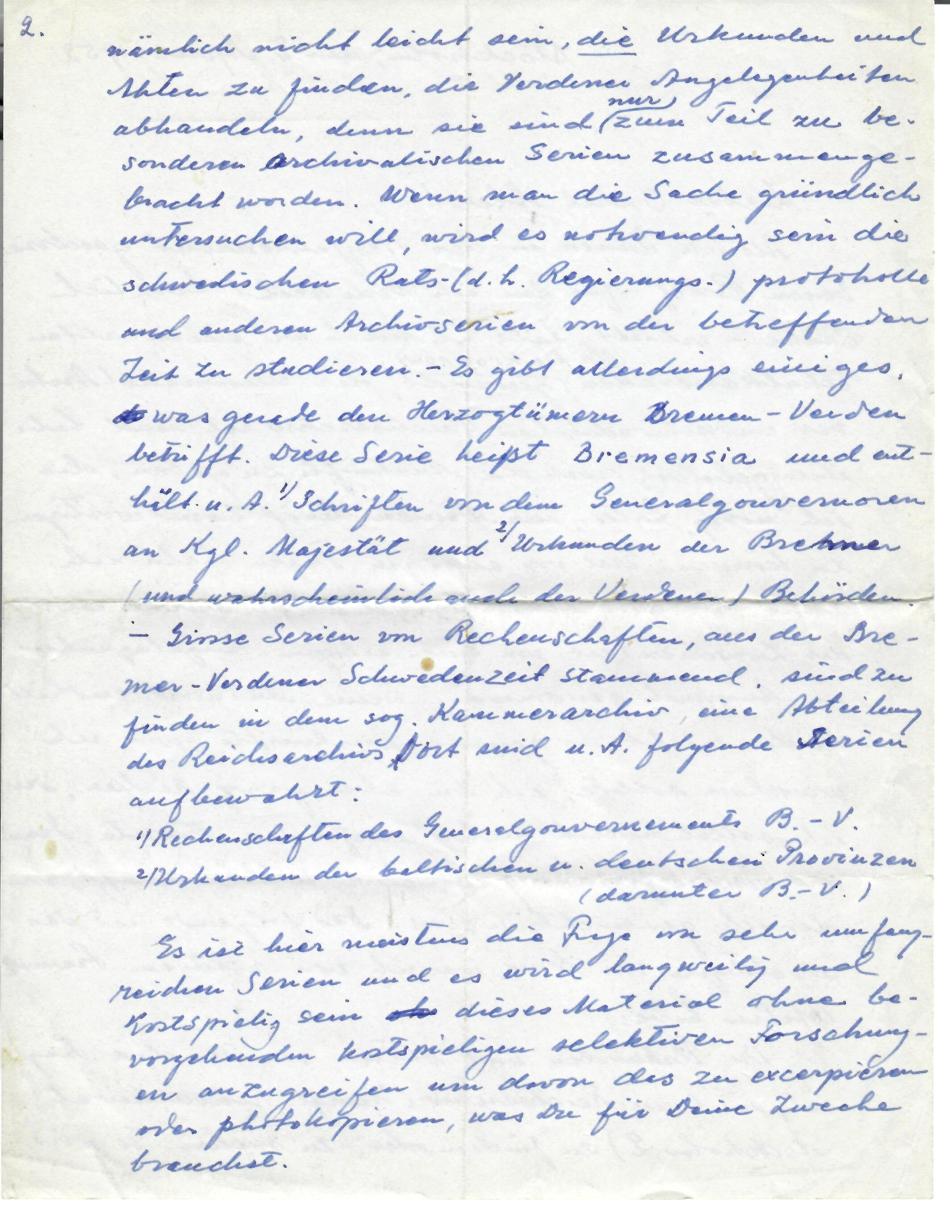 2.
nämlich nicht leicht sein, die Urkunden und
Akten zu finden, die Verdener Angelegenheiten
abhandeln, denn sie sind (nur) zum Teil zu be-
sonderen archivalischen Serien zusammenge-
bracht worden. Wenn man die Sache gründlich
untersuchen will, wird es notwendig sein die
schwedischen Rats-(d.h. Regierungs-) protokolle
und anderen Archivserien von der betreffenden
Zeit zu studieren. - Es gibt allerdings einiges,
was gerade den Herzogtümern Bremen-Verden
betrifft. Diese Serie heißt Bremensia und ent-
hält u. A. 1/ Schriften von dem Generalgouvernoren
an Kgl. Majestät und 2/ Urkunden der Bremer
(und wahrscheinlich auch der Verdener) Behörden.
- Grosse Serien von Rechenschaften, aus der Bre-
mer-Verdener Schwedenzeit stammend, sind zu
finden in dem sog. Kammerarchiv, eine Abteilung
des Reichsarchivs. Dort sind u. A. folgende Serien
aufbewahrt:
1/ Rechenschaften des Generalgouvernements B.-V.
2/ Urkunden der baltischen u. deutschen Provinzen
(darunter B.-V.)
Es ist hier meistens die Frge von sehr umfang-
reichen Serien und es wird langweilig und
kostspielig sein dieses Material ohne be-
vorgehenden kostspieligen selektiven Forschung-
en anzugreifen um davon das zu excerpieren
oder photokopieren, was Du für Deine Zwecke
brauchst.